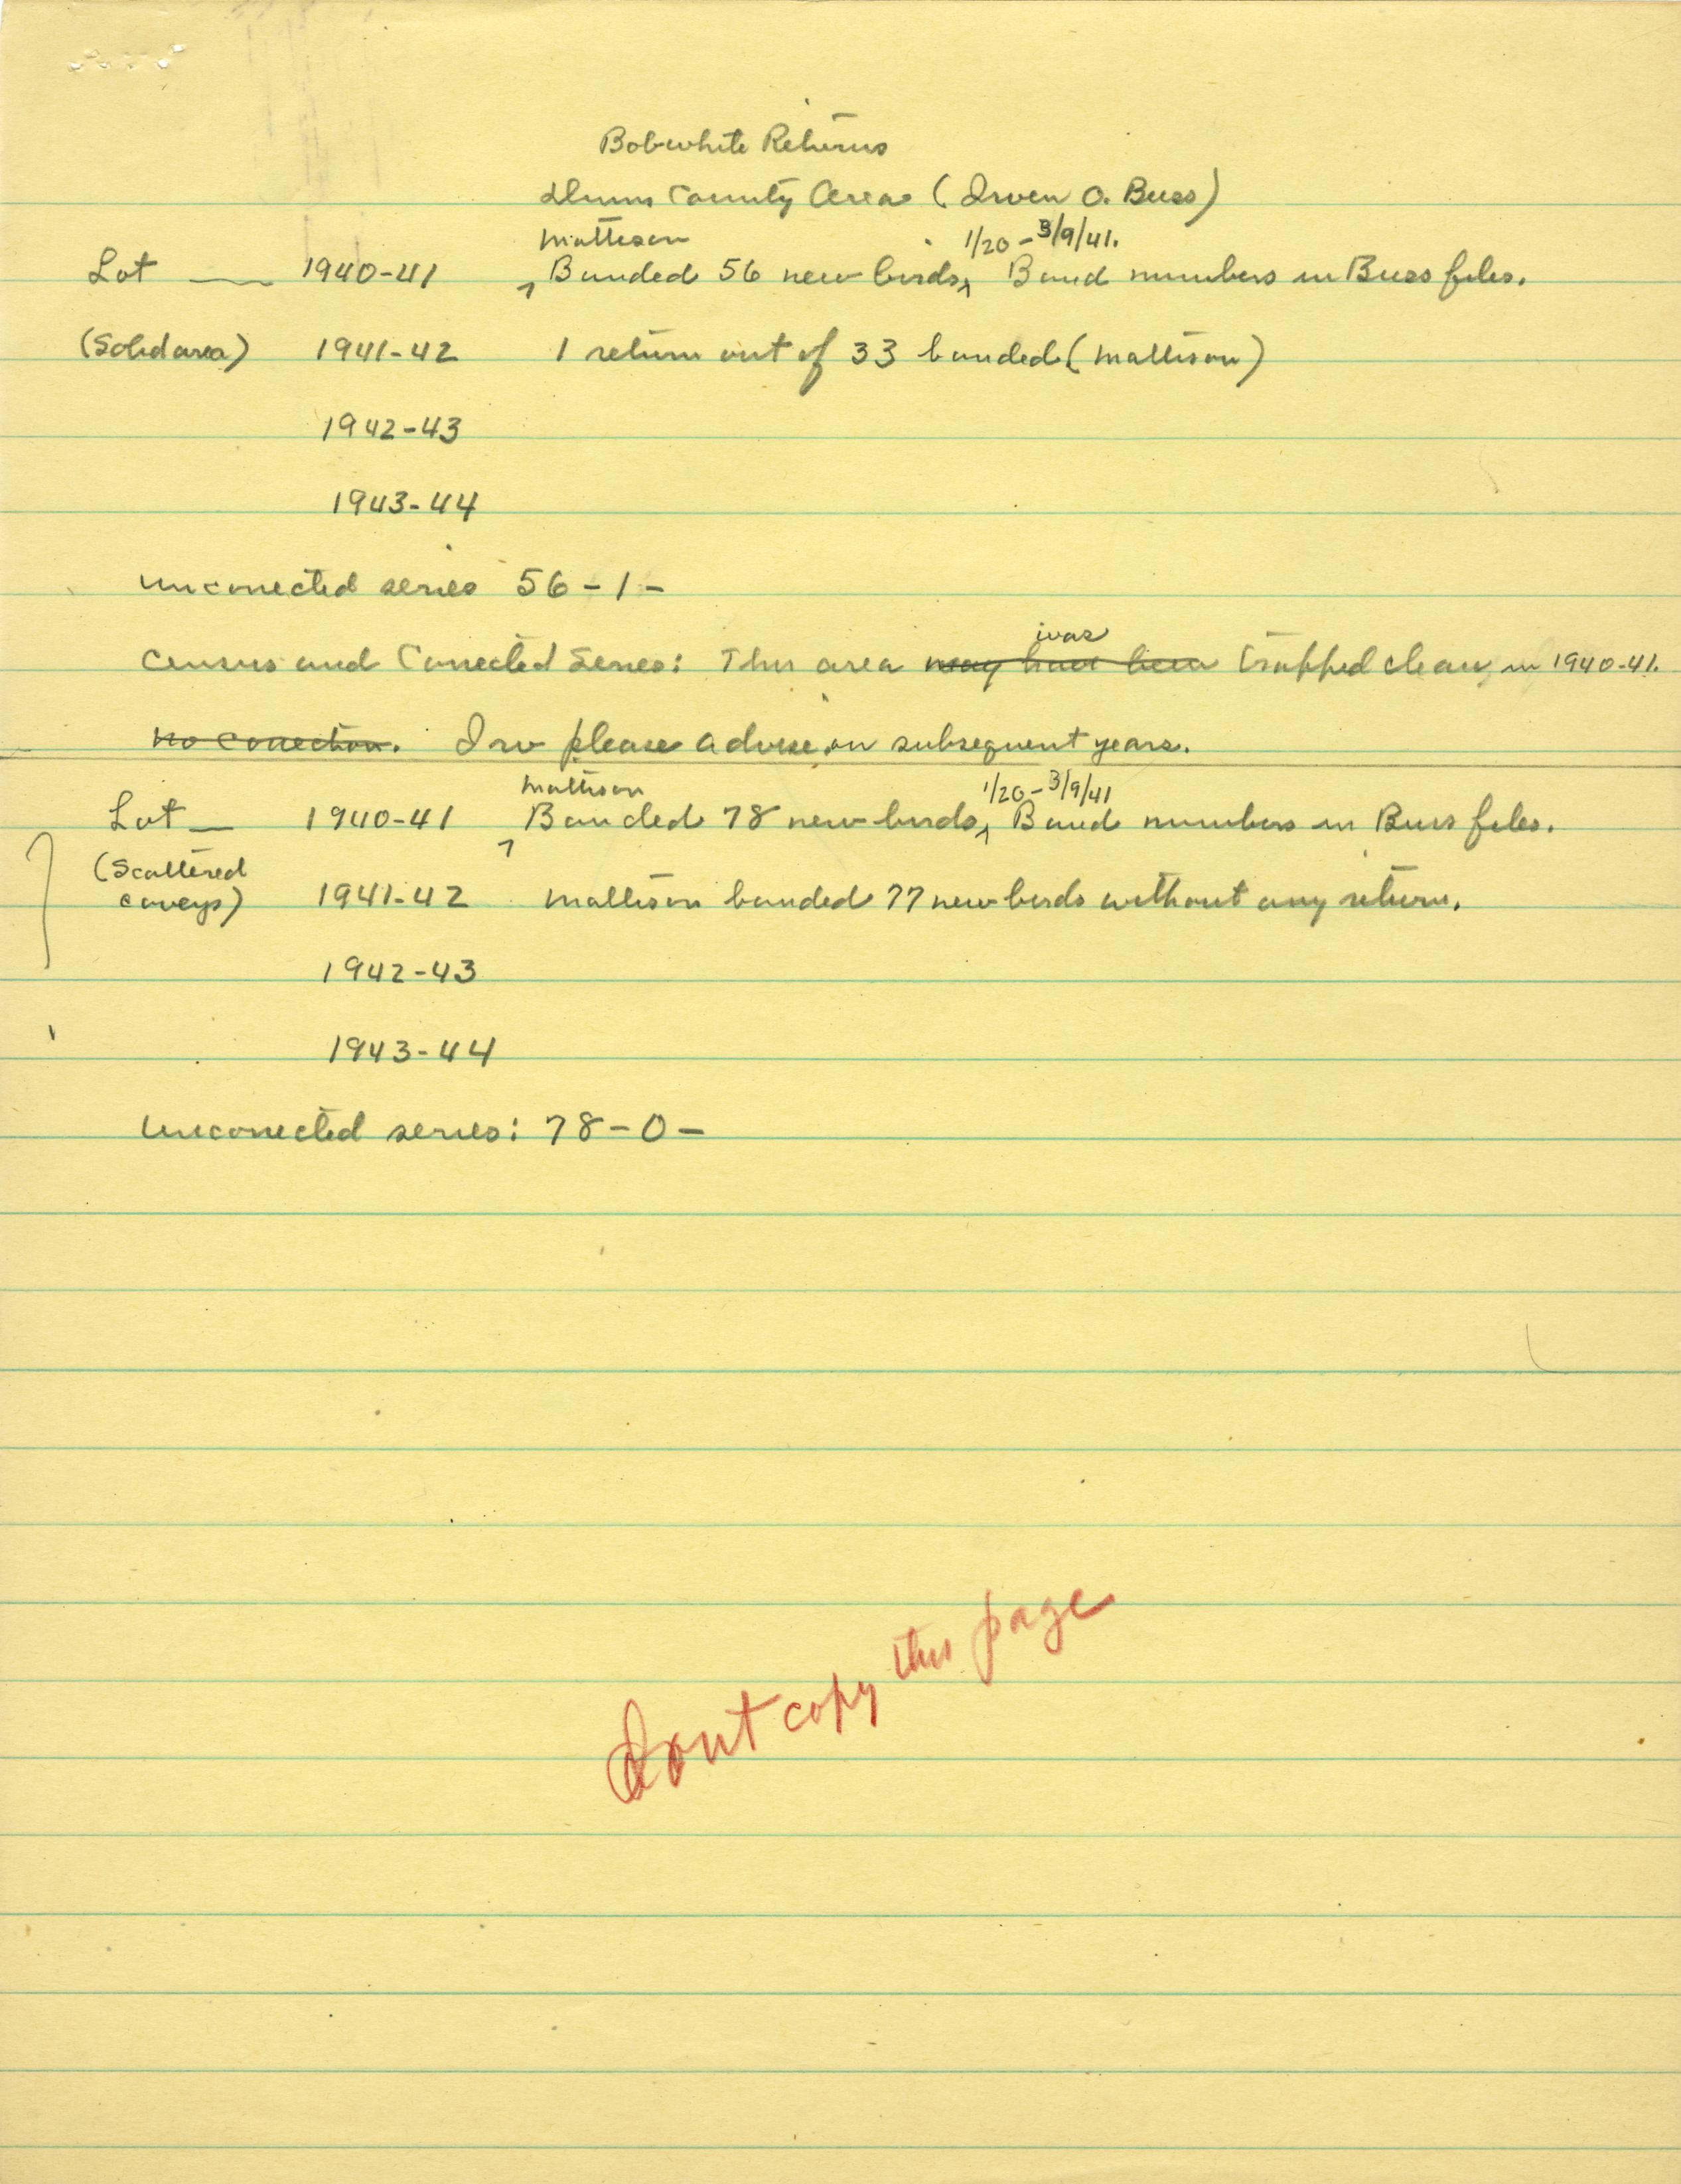 Bobwhite Returns
Dunn County Area (Irven O. Buss)
Mattison 1/20 - 3/9/41.
Lot __ 1940-41 ^ Banded 56 new birds, ^ Band numbers in Buss files.
(Solid area) 1941-42 1 return out of 33 banded (Mattison)
1942-43
1943-44
Uncorrected series 56 - 1 -
was
Census and Corrected Series: This area may have been trapped clean in 1940-41.
No correction. Irv please advise on subsequent years.
Mattison 1/20 - 3/9/41
Lot __ 1940-41 ^ Banded 78 new birds, ^ Band numbers in Buss files.
(Scattered
coveys) 1941-42 Mattison banded 77 new birds without any return.
1942-43
1943-44
Uncorrected series: 78 - 0 -
Dont copy this page